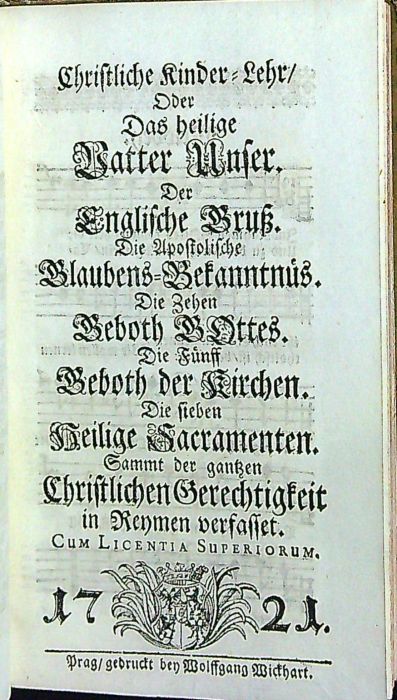 Christliche Kinder-Lehr/
Oder
Das heilige
Vatter Unser.
Der
Englische Gruß.
Die Apostolische
Glaubens-Bekanntnüs.
Die Zehen
Geboth GOttes.
Die Fünff
Geboth der Kirchen.
Die sieben
Heilige Sacramenten.
Sammt der gantzen
Christlichen Gerechtigkeit
in Reymen verfasset.
CUM LICENTIA SUPERIORUM.
1721.
Prag/ gedruckt bey Wolffgang Wickhart.